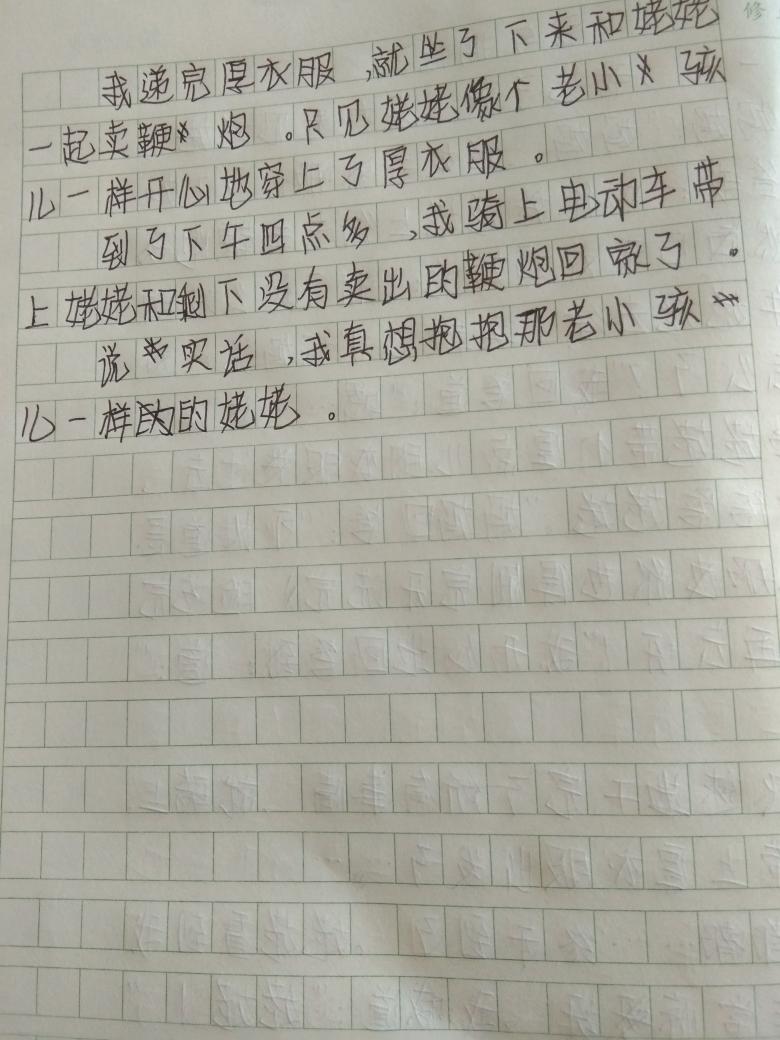 修
我递完厚衣服,就坐了下来和姥姥
一起卖鞭炮。只见姥姥像个老小孩
儿一样开心地穿上了厚衣服。
到了下午四点多,我骑上电动车带
上姥姥和剩下没有卖出的鞭炮回家了。
说实话,我真想抱抱那老小孩
儿一样的的姥姥。